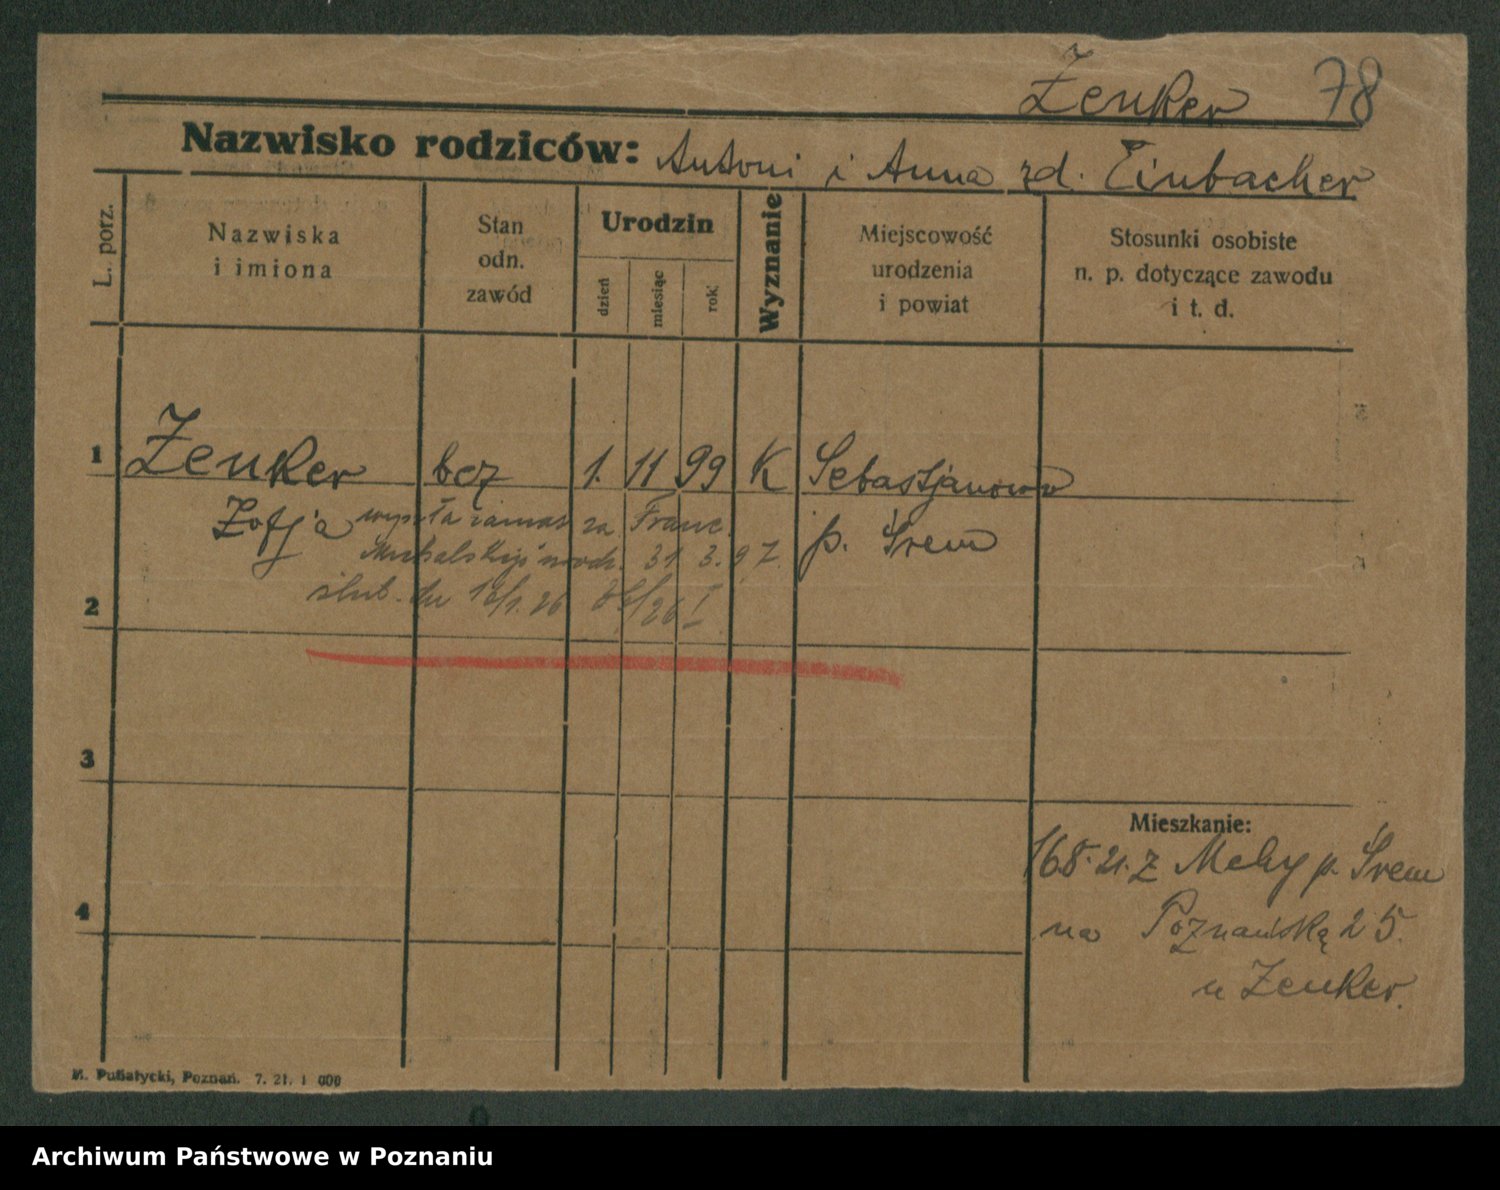 Zenker 78
Nazwisko rodziców: Antoni i Anna zd. Einbacher
L. porz.
Nazwiska
i imiona
Stan
odn.
zawód
Urodzin
dzień
miesiąc
rok
Wyznanie
Miejscowość
urodzenia
i powiat
Stosunki osobiste
n. p. dotyczące zawodu
i t. d.
1 Zenker bez 1. 11 99 K Sebastjanowo
Zofja wyszła zamąż za Franc. p. Śrem
31 3. 97.
2 ślub. dn 16/1. 26
3
4
Mieszkanie:
16.8.21. z Mchy p. Śrem
na Poznańską 25.
u Zenker.
M. Putiatycki, Poznań. 7. 21. 1 000
Archiwum Państwowe w Poznaniu